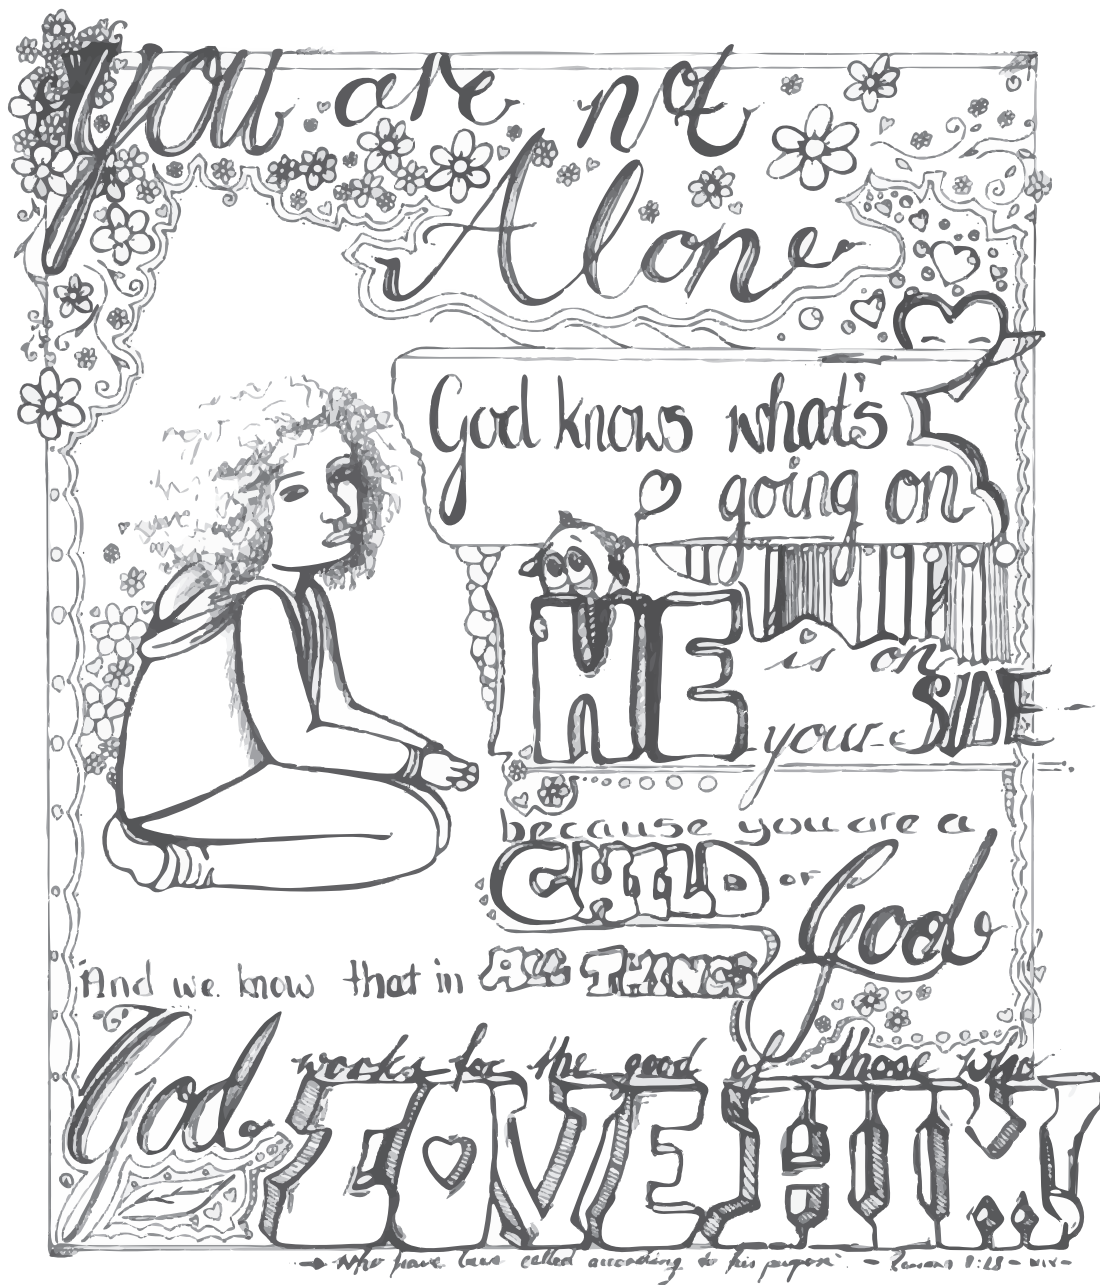 you are not
Alone
God knows what's
going on
HE is on
your SIDE
because you are a
CHILD OF God
"And we know that in ALL THINGS
God works for the good of those who
LOVE HIM!
→ who have been called according to his purpose." - Romans 8:28 - NIV -